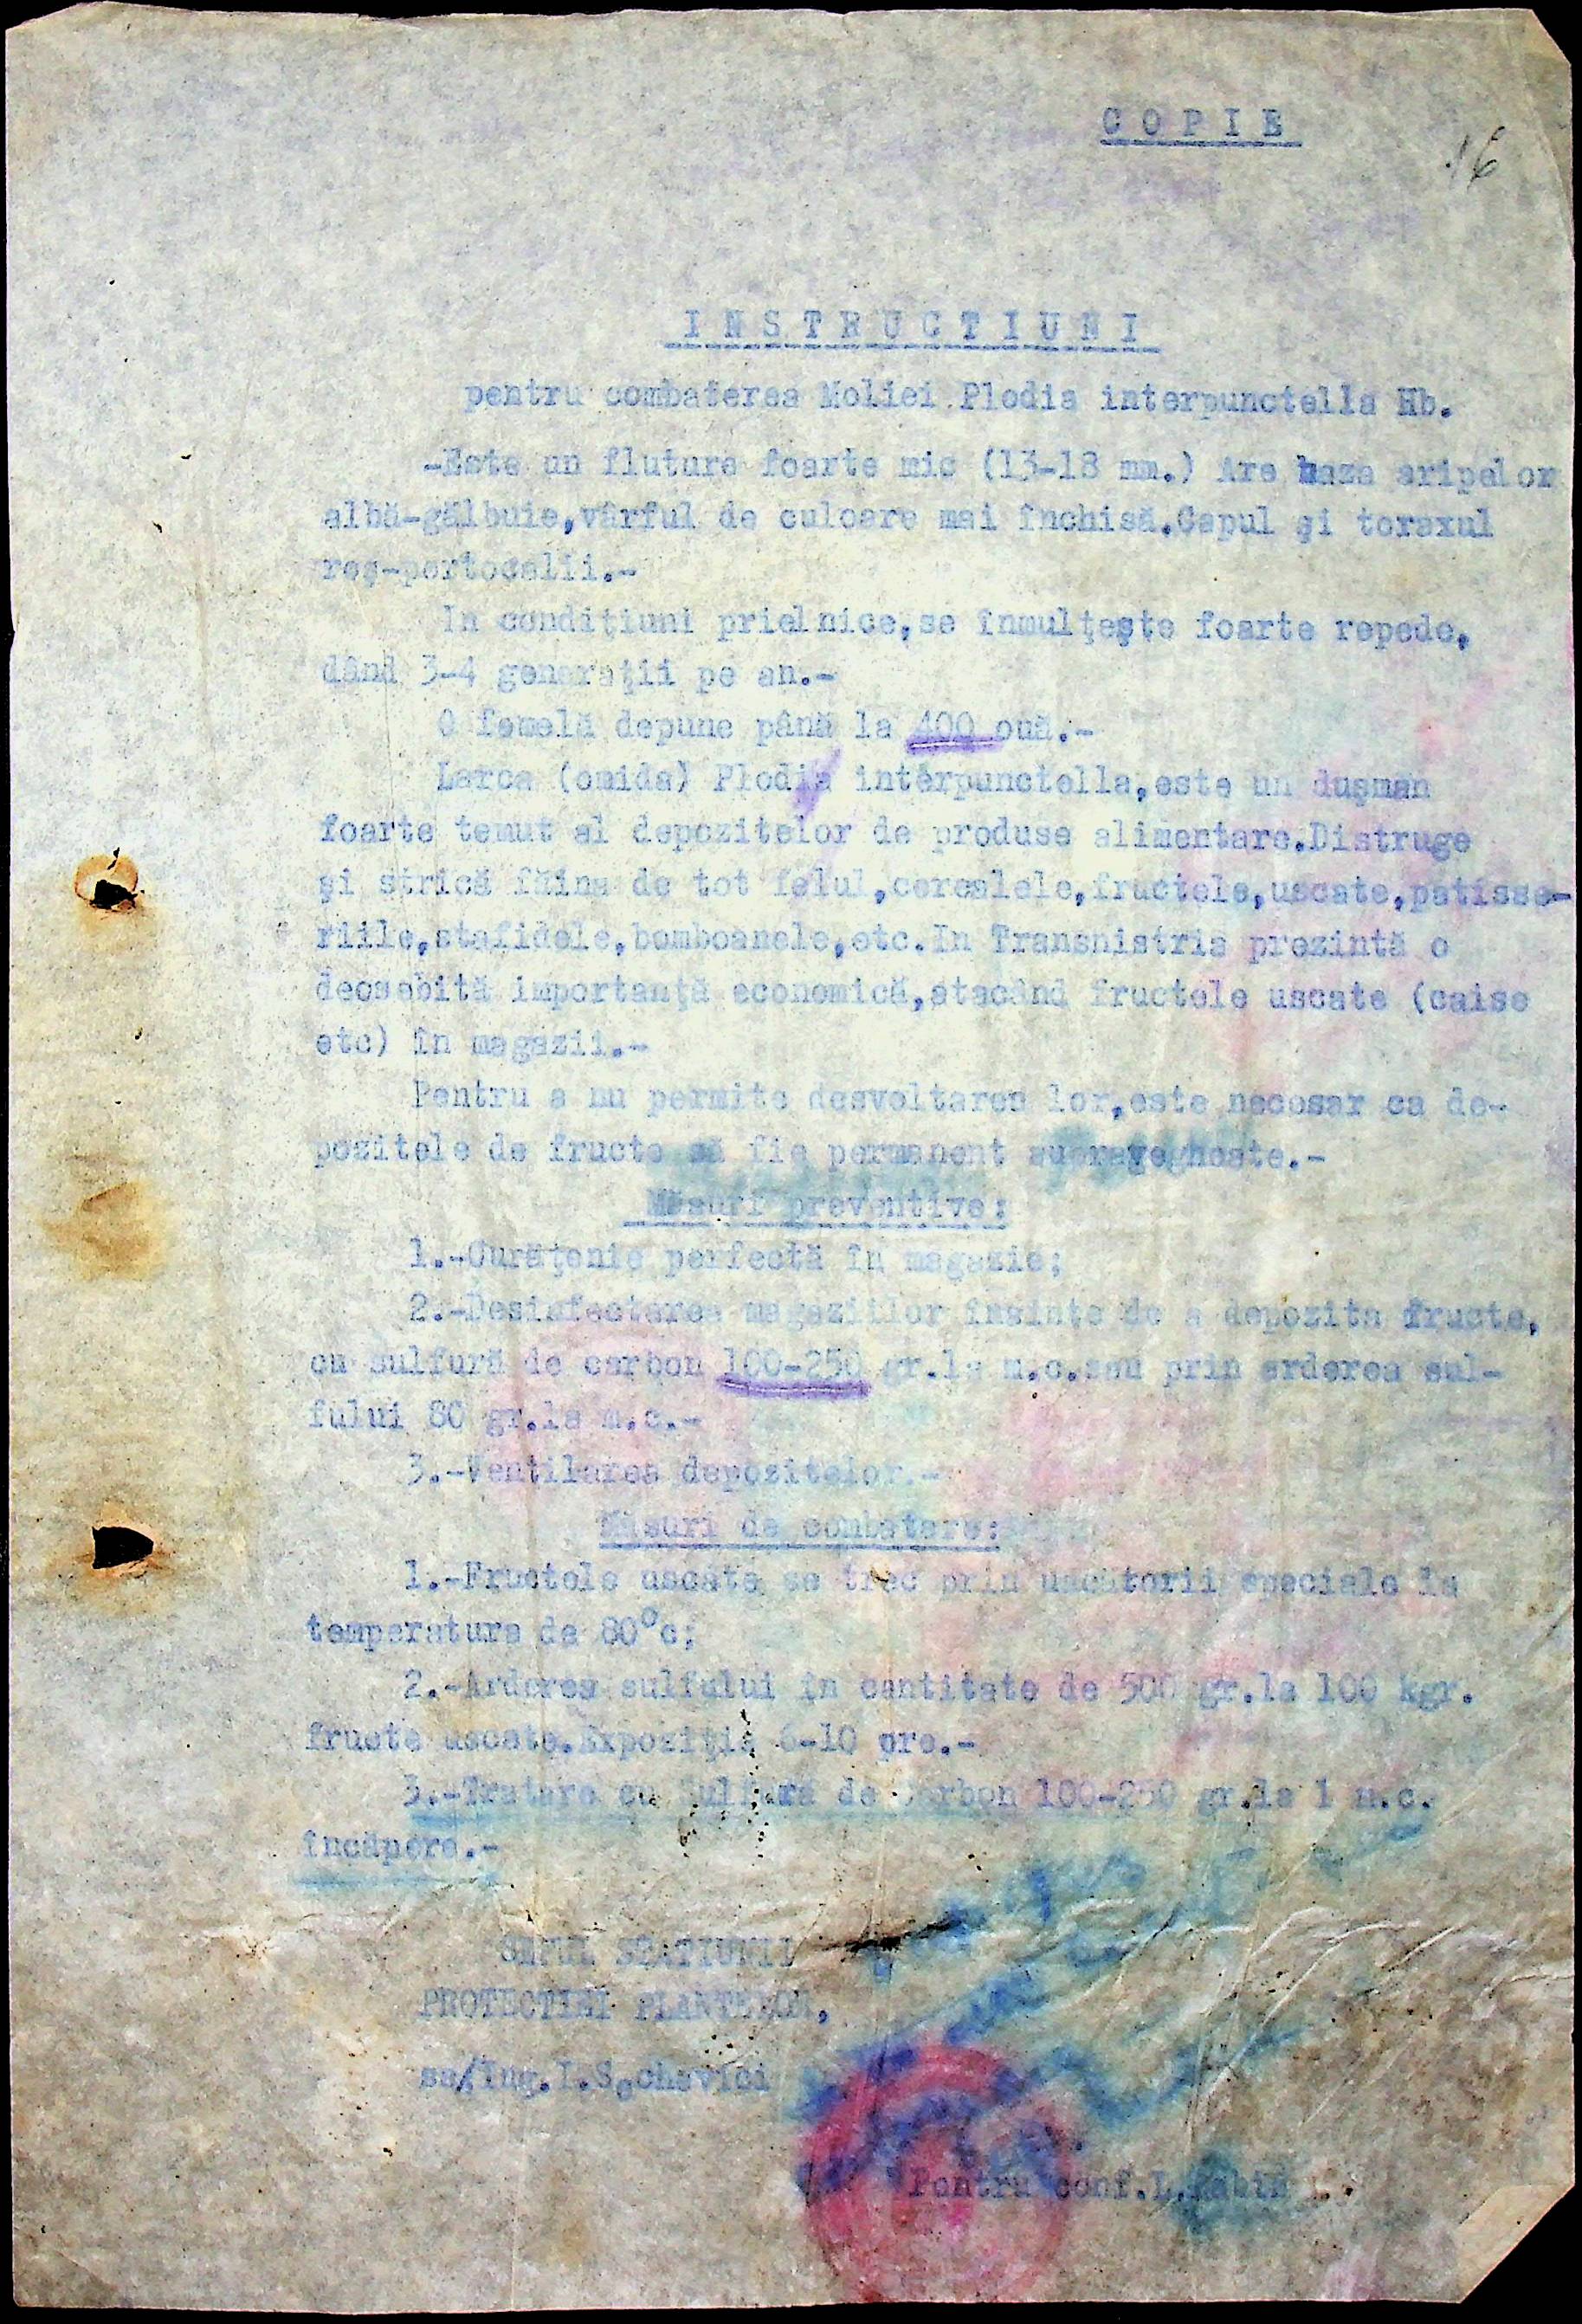 COPIE
16
INSTRUCTIUNI
pentru combaterea Moliei Plodia interpunctella Hb.
-Este un fluture foarte mic (13-18 mm.) Are baza aripelor
albă-gălbuie,vârful de culoare mai închisă.Capul şi toraxul
roş-portocalii.-
In condiţiuni prielnice,se înmulţeşte foarte repede,
dând 3-4 generaţii pe an.-
O femelă depune până la 400 ouă.-
Larca (omida) Plodia interpunctella,este un duşman
foarte temut al depozitelor de produse alimentare.Distruge
şi strică făina de tot felul,cerealele,fructele,uscate,patisse-
riile,stafidele,bomboanele,etc.In Transnistria prezintă o
deosebită importanţă economică,atacând fructele uscate (caise
etc) în magazii.-
Pentru a nu permite desvoltarea lor,este necesar ca de-
pozitele de fructe să fie permanent
Măsuri preventive:
1.-Curăţenie perfectă în magazie;
2.-Desinfectarea magaziilor înainte de a depozita fructe,
cu sulfură de carbon 100-250 gr.la m.c.sau prin arderea sul-
fului 80 gr.la m.c.-
3.-Ventilarea depozitelor.-
Măsuri de combatere:
1.-Fructele uscate se trec prin uscătorii speciale la
temperatura de 80°c;
2.-Arderea sulfului în cantitate de 500 gr.la 100 kgr.
fructe uscate.Expoziţia 6-10 ore.-
3.-Tratare cu Sulfură de Carbon 100-250 gr.la 1 m.c.
încăpere.-
SEFUL STATIUNII
PROTECTIEI PLANTELOR,
ss/Ing.I.Sochevici
Pentru conf.L.